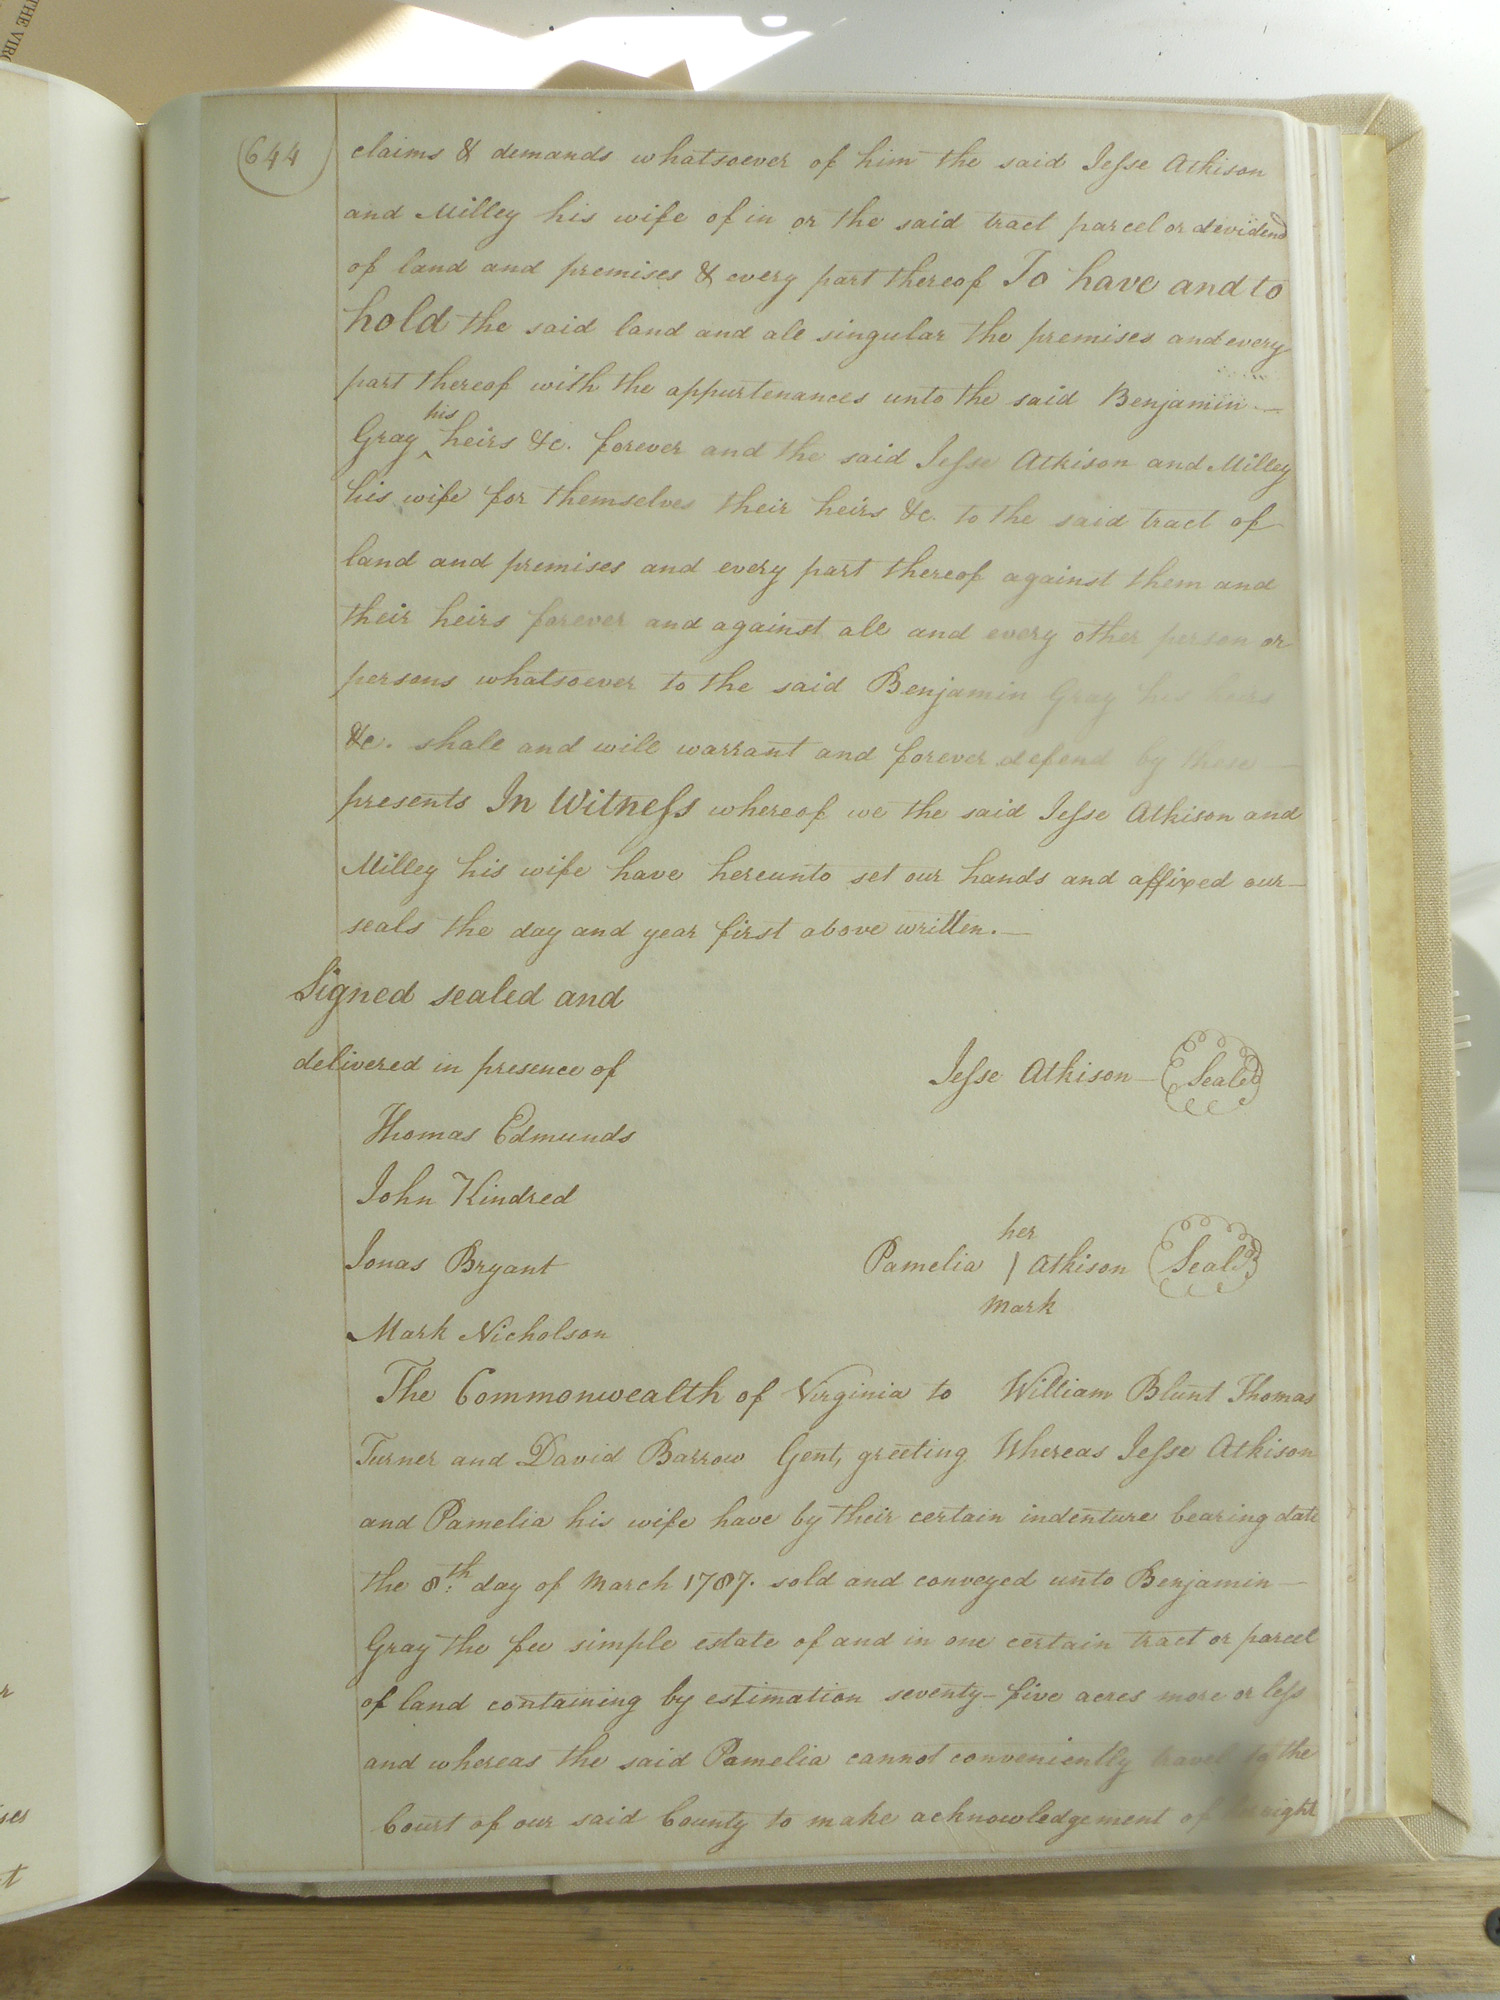 THE VIRG
644
claims & demands whatsoever of him the said Jesse Atkison
and Milley his wife of in or the said tract parcel or devidend
of land and premises & every part thereof To have and to
hold the said land and all singular the premises and every
part thereof with the appurtenances unto the said Benjamin
his
Gray ^ heirs &c. forever and the said Jesse Atkison and Milley
his wife for themselves their heirs &c. to the said tract of
land and premises and every part thereof against them and
their heirs forever and against all and every other person or
persons whatsoever to the said Benjamin Gray his heirs
&c. shall and will warrant and forever defend by these —
presents In Witness whereof we the said Jesse Atkison and
Milley his wife have hereunto set our hands and affixed our —
seals the day and year first above written. —
Signed sealed and
delivered in presence of
Jesse Atkison — Seal
Thomas Edmunds
John Kindred
her
Jonas Bryant
Pamelia / Atkison Seal
mark
Mark Nicholson
The Commonwealth of Virginia to William Blunt Thomas
Turner and David Barrow Gent, greeting Whereas Jesse Atkison
and Pamelia his wife have by their certain indenture bearing date
the 8th. day of March 1787. sold and conveyed unto Benjamin —
Gray the fee simple estate of and in one certain tract or parcel
of land containing by estimation seventy-five acres more or less
and whereas the said Pamelia cannot conveniently travel to the
Court of our said County to make acknowledgement of right